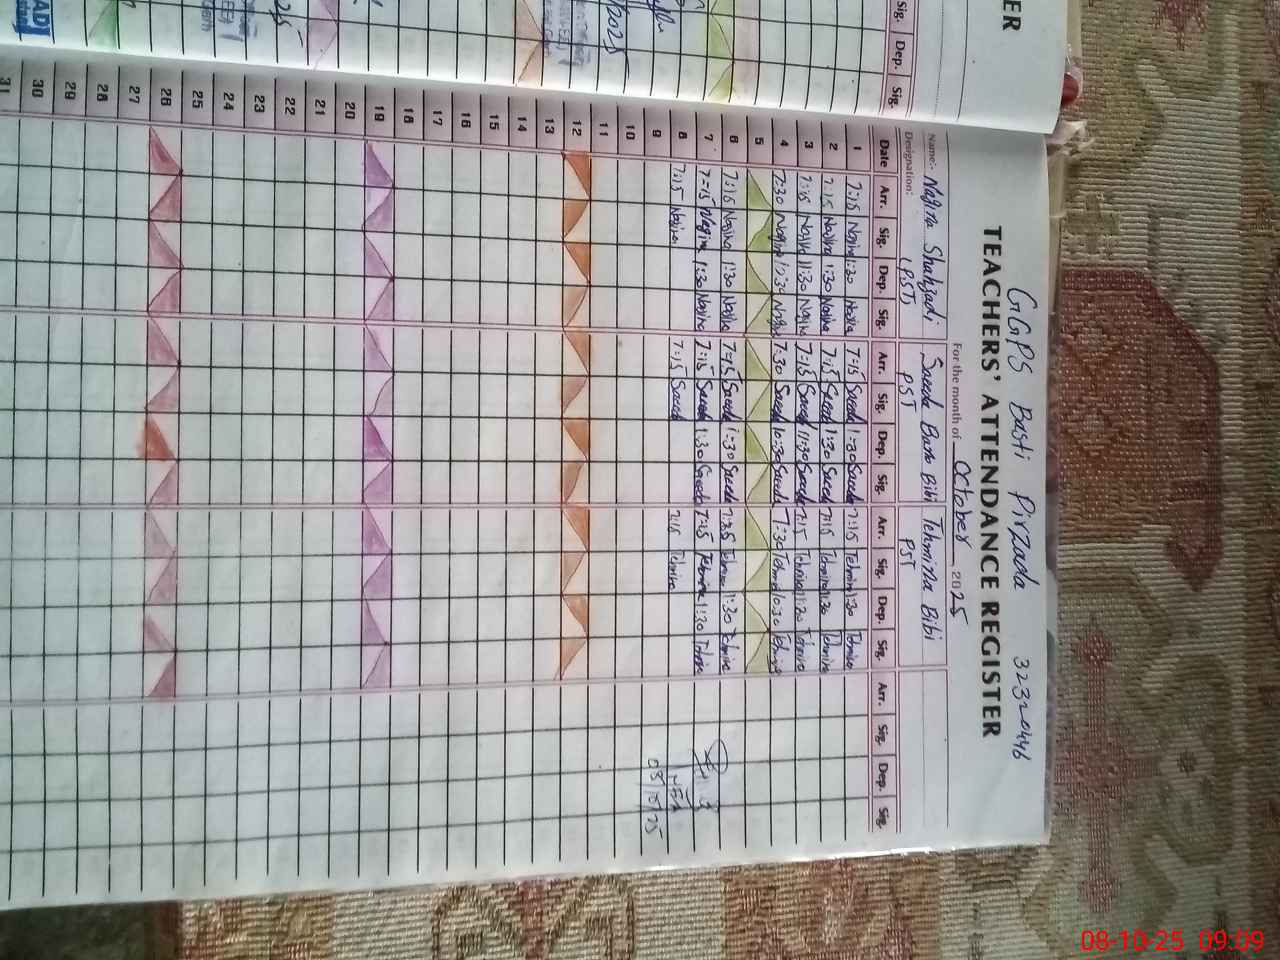 GGPS Basti Pirzada 32320446
TEACHERS' ATTENDANCE REGISTER
For the month of October 2025
Name:- Najira Shahzadi Saeeda Bano Bibi Tehmina Bibi
Designation: (PST) PST PST
Date Arr. Sig. Dep. Sig. Arr. Sig. Dep. Sig. Arr. Sig. Dep. Sig. Arr. Sig. Dep. Sig.
1 7:15 Najina 1:30 Najina 7:15 Saeeda 1:30 Saeeda 7:15 Tehmina 1:30 Tehmina
2 7:15 Najina 1:30 Najina 7:15 Saeeda 1:30 Saeeda 7:15 Tehmina 1:30 Tehmina
3 7:15 Najina 11:30 Najina 7:15 Saeeda 11:30 Saeeda 7:15 Tehmina 11:30 Tehmina
4 7:30 Najina 10:30 Najina 7:30 Saeeda 10:30 Saeeda 7:30 Tehmina 10:30 Tehmina
5
6 7:15 Najina 1:30 Najina 7:15 Saeeda 1:30 Saeeda 7:15 Tehmina 1:30 Tehmina
7 7:15 Najina 1:30 Najina 7:15 Saeeda 1:30 Saeeda 7:15 Tehmina 1:30 Tehmina
8 7:15 Najina 7:15 Saeeda 7:15 Tehmina
9
10
11
12
13
14
15
16
17
18
19
20
21
22
23
24
25
26
27
28
29
30
31
MEA
08/10/25
ER
Sig. Dep. Sig.
2025
08-10-25 09:09